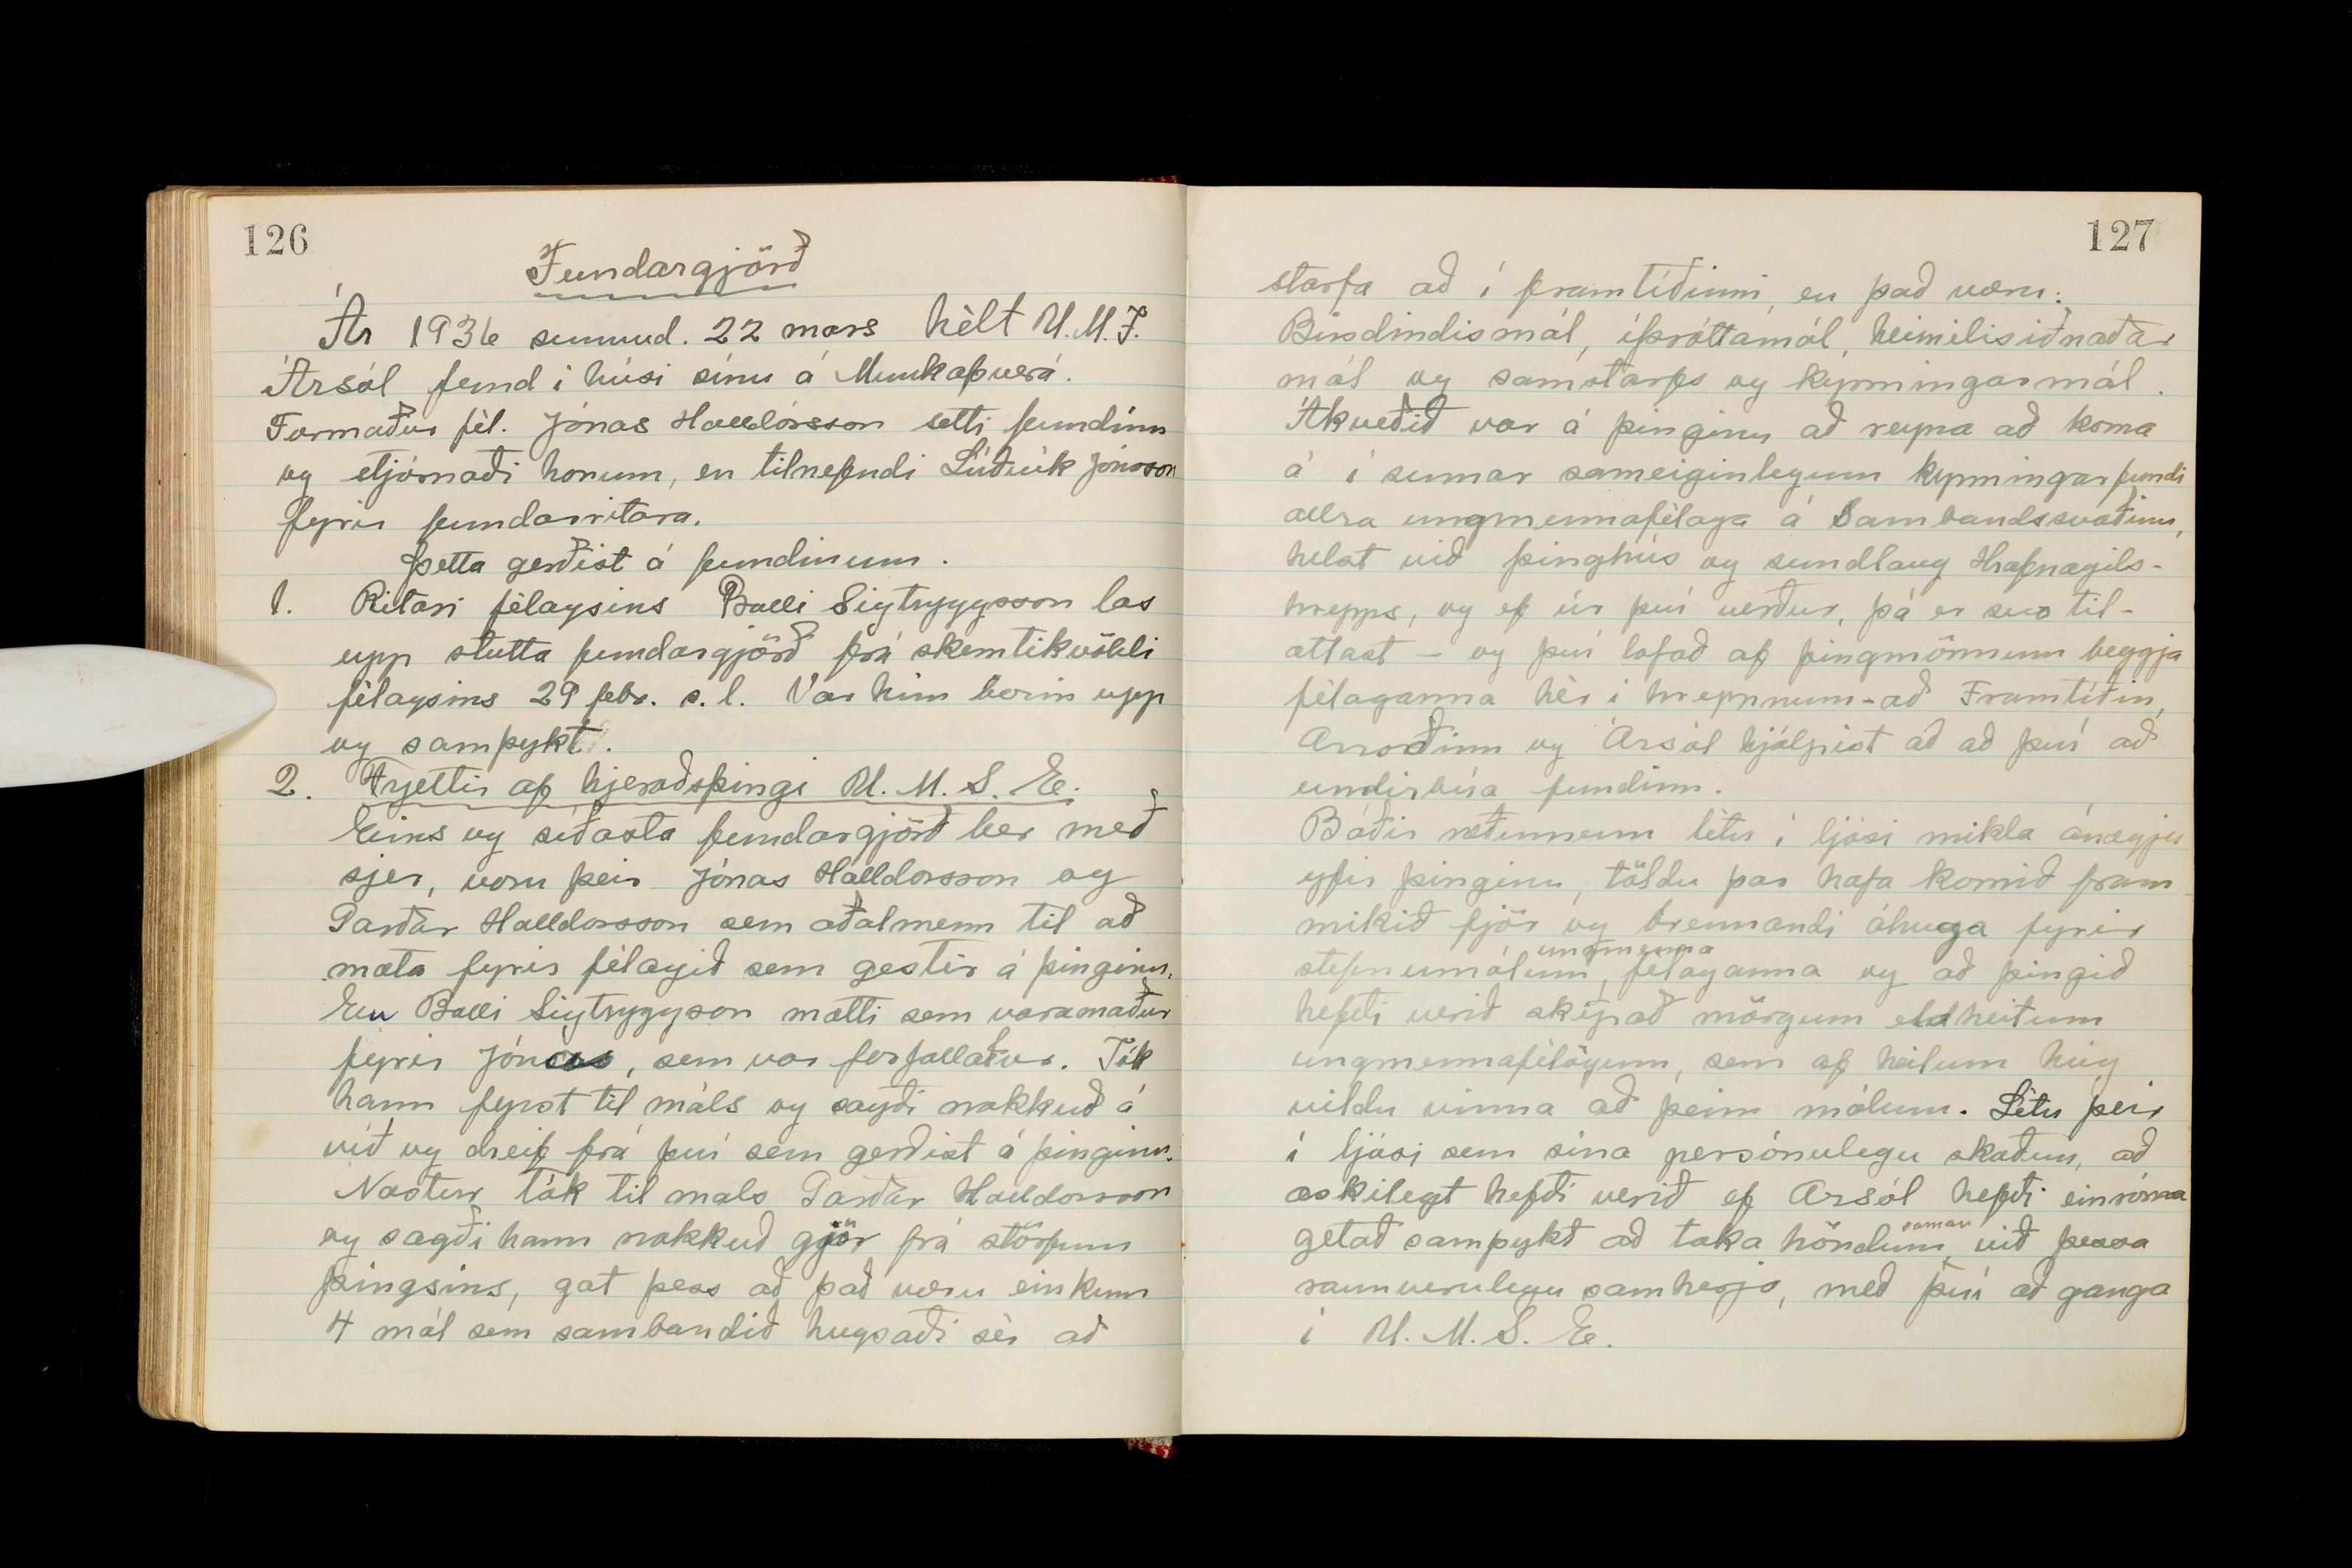 126
Fundargjörð
Ár 1936 sunnud. 22 mars hèlt U.M.F.
Ársól fund í húsi sínu á Munkaþverá.
Formaður fèl. Jónas Halldórsson setti fundinn
og stjórnaði honum, en tilnefndi Lúðvík Jónsson
fyrir fundarritara.
Þetta gerðist á fundinum.
1. Ritari fèlagsins Balli Sigtryggsson las
upp stutta fundargjörð frá skemtikvöldi
fèlagsins 29 febr. s.l. Var hún borin upp
og samþykt.
2. Frjettir af hjeraðsþingi U. M. S. E.
Eins og síðasta fundargjörð ber með
sjer, voru þeir Jónas Halldorsson og
Garðar Halldorsson sem aðalmenn til að
mæta fyrir fèlagið sem gestir á þinginu.
En Balli Sigtryggson mætti sem varamaður
fyrir Jónas, sem var forfallaður. Tók
hann fyrst til máls og sagði nokkuð á
víð og dreif frá því sem gerðist á þinginu.
Næstur tók til mals Garðar Halldorsson
og sagði hann nokkuð gjör frá störfum
þingsins, gat þess að það væru einkum
4 mál sem sambandið hugsaði sèr að
127
starfa að í framtíðinni, en það væru:
Bindindismál, íþróttamál, heimilisiðnaðar
mál og samstarfs og kynningarmál.
Ákveðið var á þinginu að reyna að koma
á í sumar sameiginlegum kynningarfundi
allra ungmennafèlaga á Sambandssvæðinu,
helst við þinghús og sundlaug Hrafnagils-
hrepps, og ef úr því verður, þá er svo til-
ætlast - og því lofað af þingmönnum beggja
fèlaganna hèr í hreppnum - að Framtíðin,
Arroðinn og Ársól hjálpist að að því að
undirbúa fundinn.
Báðir ræðumenn lètu í ljósi mikla ánægju
yfir þinginu, töldu þar hafa komið fram
mikið fjör og brennandi áhuga fyrir
stefnumálum ungmenna fèlaganna og að þingið
hefði verið skipað mörgum eldheitum
ungmennafèlögum, sem af heilum hug
vildu vinna að þeim málum. Lètu þeir
í ljósi sem sína persónulegu skoðun, að
æskilegt hefði verið ef Arsól hefði einróma
getað samþykt að taka höndum saman við þessa
raunverulegu samherja, með því að ganga
í U. M. S. E.